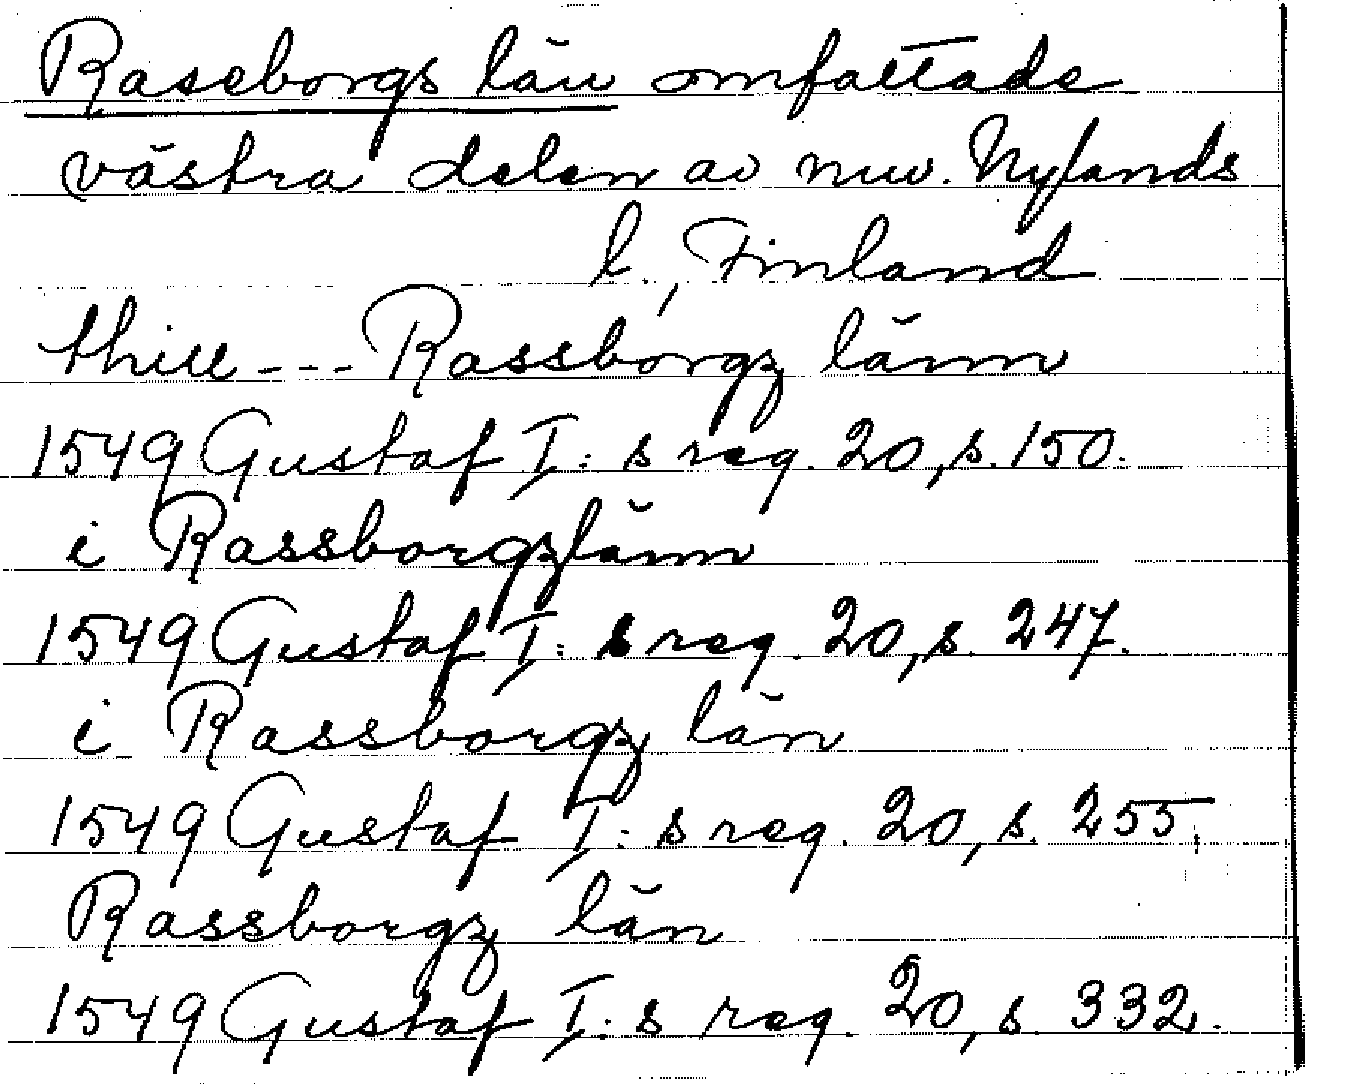 Raseborgs län omfattade
västra delen av nuv. Nylands
l., Finland
thill --- Rassborgz länn
1549 Gustaf I:s reg. 20, s. 150.
i Rassborgzlänn
1549 Gustaf I:s reg. 20, s. 247.
i Rassborgz län
1549 Gustaf I:s reg. 20, s. 255.
Rassborgz län
1549 Gustaf I:s reg. 20, s. 332.